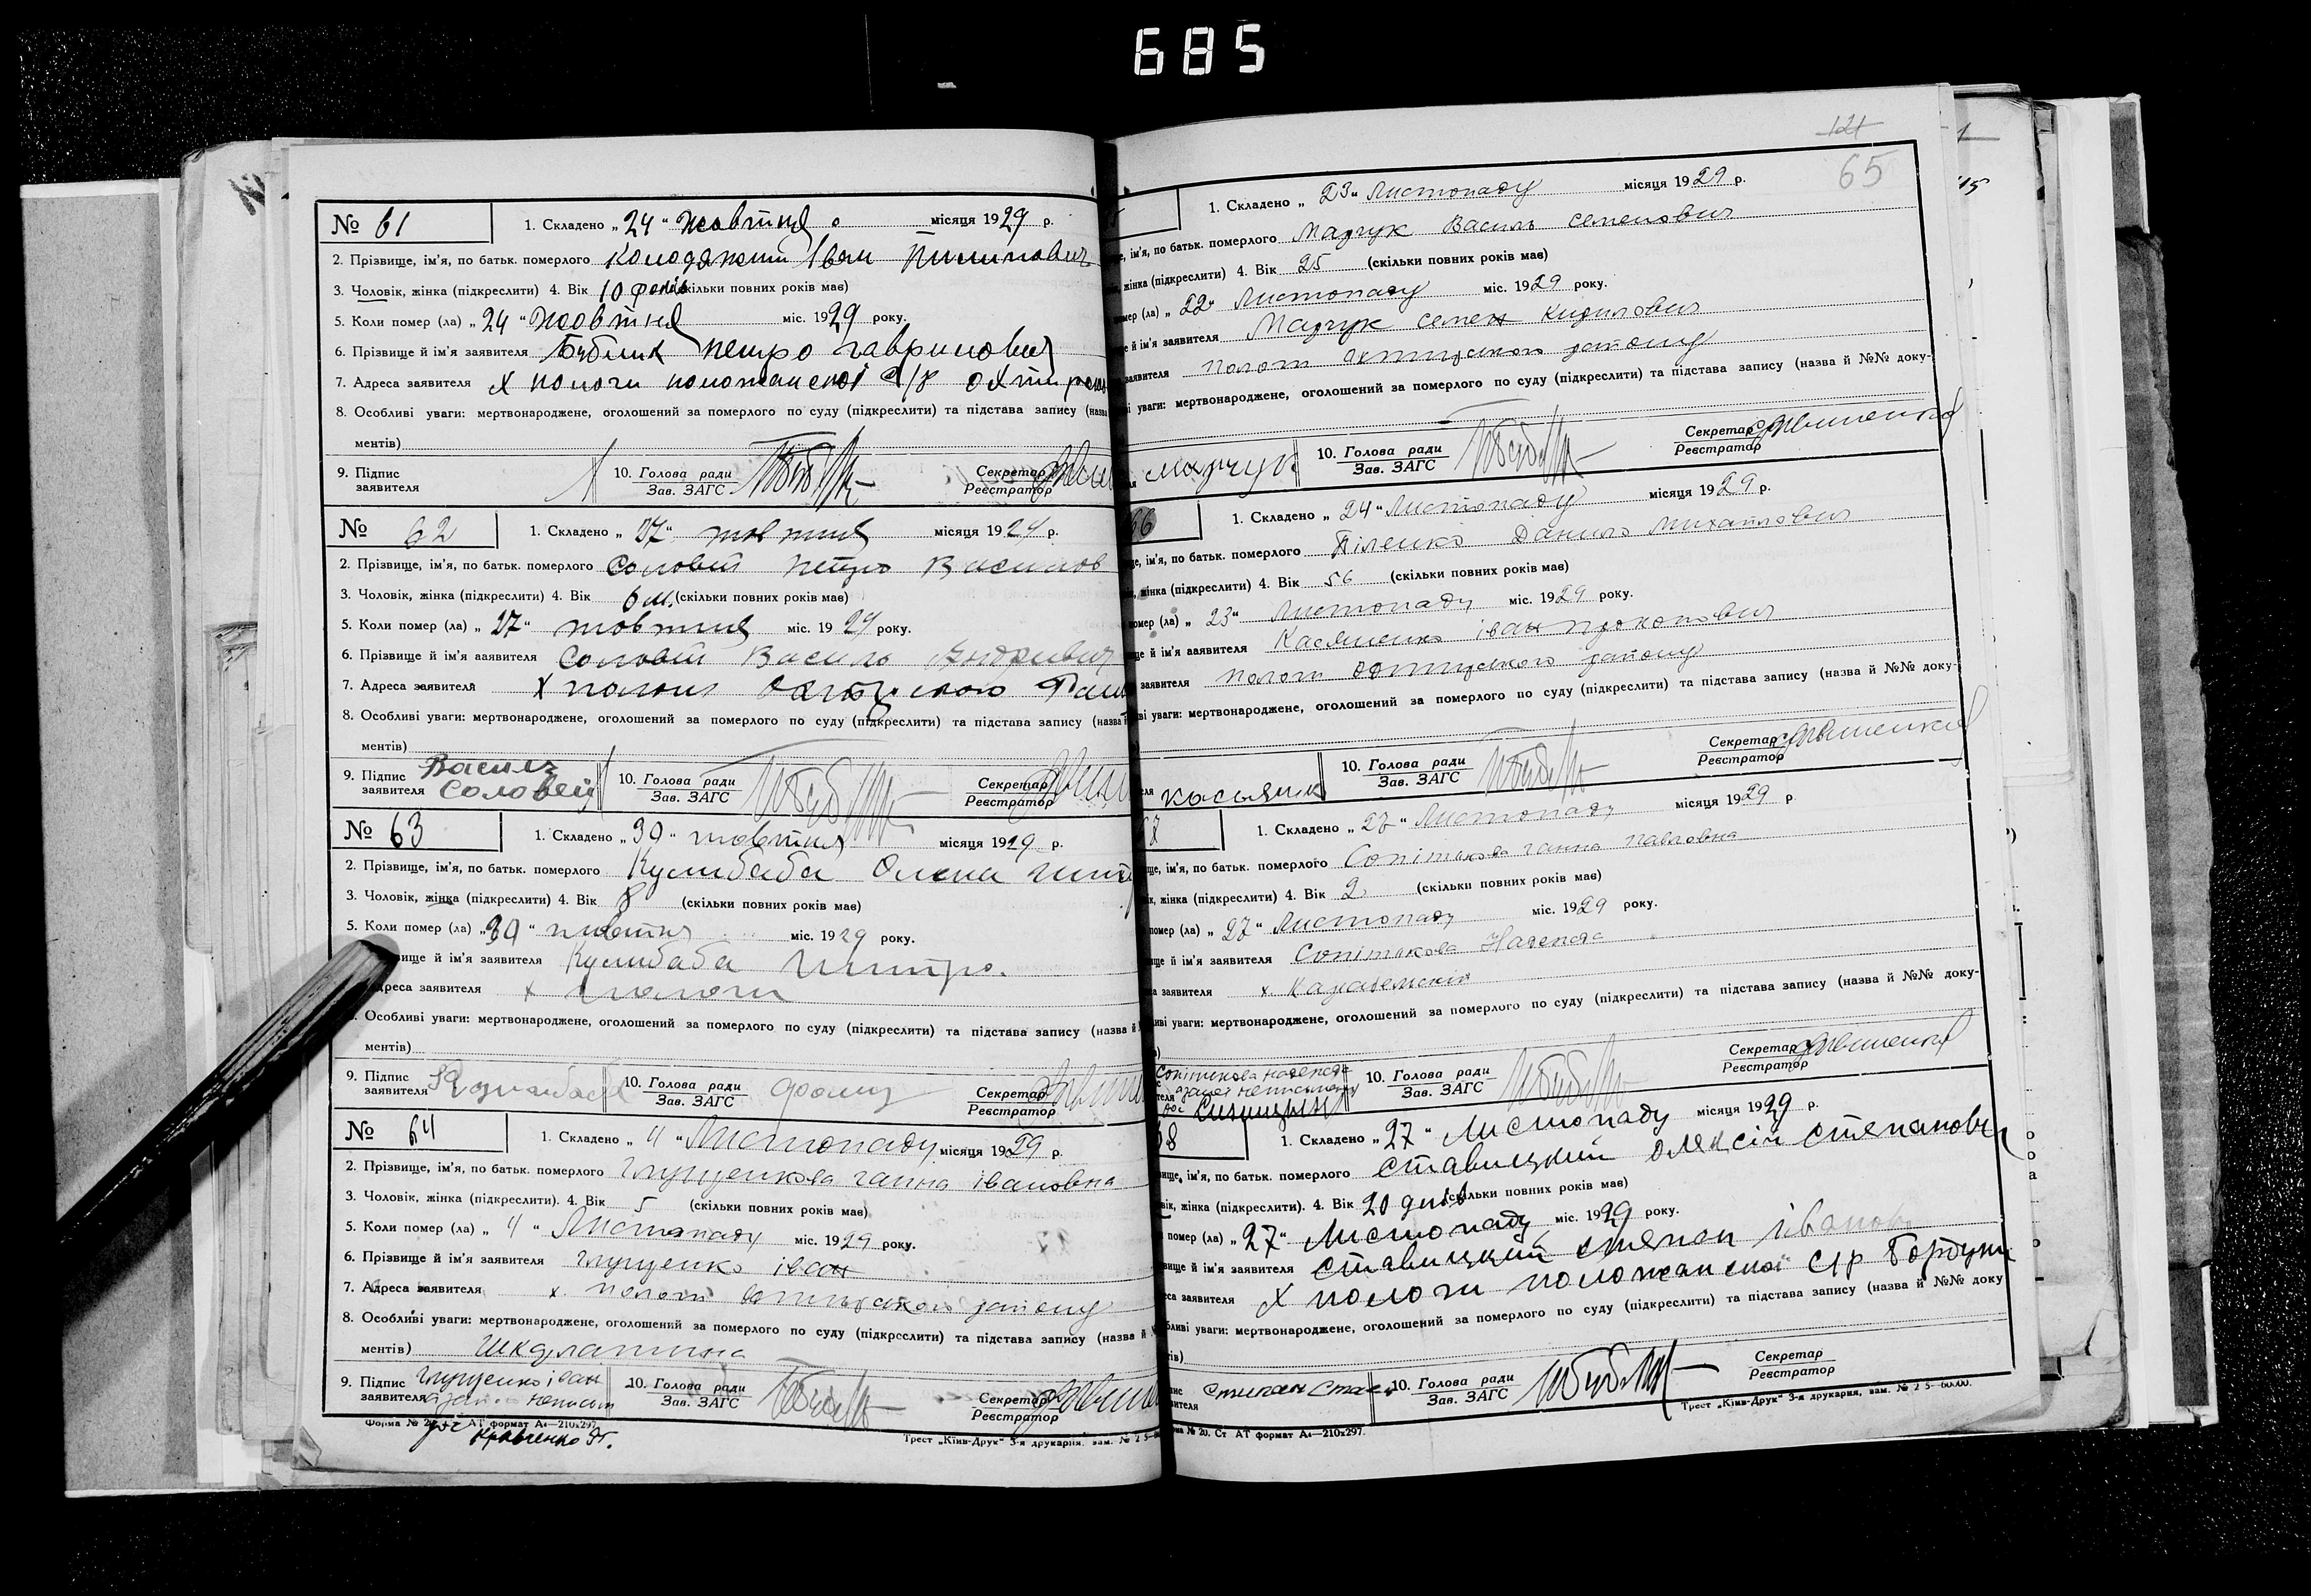 685
№ 61
1. Складено „ 24 “ Жовтня місяця 1929 р.
2. Прізвище, ім'я, по батьк. померлого Колодяжний Іван Пилипович
3. Чоловік, жінка (підкреслити) 4. Вік 10 років (скільки повних років має)
5. Коли помер (ла) „ 24 “ Жовтня міс. 1929 року.
6. Прізвище й ім'я заявителя Бублик Петро Гаврилович
7. Адреса заявителя х Пологи Положанської с/р
8. Особливі уваги: мертвонароджене, оголошений за померлого по суду (підкреслити) та підстава запису (назва
ментів)
9. Підпис заявителя
10. Голова ради Зав. ЗАГС
Секретар Реєстратор
№ 62
1. Складено „ 27 “ жовтня місяця 1929 р.
2. Прізвище, ім'я, по батьк. померлого Соловей Петро Васильов
3. Чоловік, жінка (підкреслити) 4. Вік 6 м. (скільки повних років має)
5. Коли помер (ла) „ 27 “ жовтня міс. 1929 року.
6. Прізвище й ім'я заявителя Соловей Василь Андриевич
7. Адреса заявителя х Пологи
8. Особливі уваги: мертвонароджене, оголошений за померлого по суду (підкреслити) та підстава запису (назва й
ментів)
9. Підпис заявителя Василь Соловей
10. Голова ради Зав. ЗАГС
Секретар Реєстратор
№ 63
1. Складено „ 30 “ жовтня місяця 1929 р.
2. Прізвище, ім'я, по батьк. померлого Кулибаба Олена
3. Чоловік, жінка (підкреслити) 4. Вік 8 (скільки повних років має)
5. Коли помер (ла) „ 30 “ жовтня міс. 1929 року.
вище й ім'я заявителя Кулибаба
дреса заявителя х Пологи
Особливі уваги: мертвонароджене, оголошений за померлого по суду (підкреслити) та підстава запису (назва й
ментів)
9. Підпис заявителя
10. Голова ради Зав. ЗАГС
Секретар Реєстратор
№ 64
1. Складено „ 4 “ Листопаду місяця 1929 р.
2. Прізвище, ім'я, по батьк. померлого Глущенкова Ганна Івановна
3. Чоловік, жінка (підкреслити). 4. Вік 5 (скільки повних років має)
5. Коли помер (ла) „ 4 “ Листопаду міс. 1929 року.
6. Прізвище й ім'я заявителя Глущенко Іван
7. Адреса заявителя х. Пологи Охтирського району
8. Особливі уваги: мертвонароджене, оголошений за померлого по суду (підкреслити) та підстава запису (назва й
ментів) Шкарлатина
9. Підпис заявителя Глущенко Іван
Кравченко
10. Голова ради Зав. ЗАГС
Секретар Реєстратор
АТ формат А4—210х297.
Трест „Київ-Друк“ 3-я друкарня, зам. №
121
65
1. Складено „ 23 “ Листопаду місяця 1929 р.
е, ім'я, по батьк. померлого Марчук Василь Семенович
жінка (підкреслити) 4. Вік 25 (скільки повних років має)
омер (ла) „ 22 “ Листопаду міс. 1929 року.
е й ім'я заявителя Марчук Семен Кирилович
заявителя Пологи Охтирського району
і уваги: мертвонароджене, оголошений за померлого по суду (підкреслити) та підстава запису (назва й №№ доку-
Марчук
10. Голова ради Зав. ЗАГС
Секретар Реєстратор
66
1. Складено „ 24 “ Листопаду місяця 1929 р.
ще, ім'я, по батьк. померлого Біленко Данило Михайлович
к, жінка (підкреслити) 4. Вік 56 (скільки повних років має)
помер (ла) „ 23 “ Листопаду міс. 1929 року.
ще й ім'я заявителя Касяненко Іван Прокопович
заявителя Пологи Охтирського району
ві уваги: мертвонароджене, оголошений за померлого по суду (підкреслити) та підстава запису (назва й №№ доку-
10. Голова ради Зав. ЗАГС
Секретар Реєстратор
67
1. Складено „ 27 “ Листопаду місяця 1929 р
ще, ім'я, по батьк. померлого Сопітькова Ганна Павловна
к, жінка (підкреслити) 4. Вік 2 (скільки повних років має)
помер (ла) „ 27 “ Листопаду міс. 1929 року.
ще й ім'я заявителя Сопітькова Надежда
а заявителя х.
иві уваги: мертвонароджене, оголошений за померлого по суду (підкреслити) та підстава запису (назва й №№ доку-
Сопітькова Надежда
10. Голова ради Зав. ЗАГС
Секретар Реєстратор
68
1. Складено „ 27 “ Листопаду місяця 1929 р.
вище, ім'я, по батьк. померлого Ставицкий Олексій Степанович
вік, жінка (підкреслити). 4. Вік 20 днів (скільки повних років має)
помер (ла) „ 27 “ Листопаду міс. 1929 року.
вище й ім'я заявителя Ставицкий Степан Іванов
са заявителя х Пологи Положанської с/р
бливі уваги: мертвонароджене, оголошений за померлого по суду (підкреслити) та підстава запису (назва й №№ доку
тів)
Степан
10. Голова ради Зав. ЗАГС
Секретар Реєстратор
№ 20. Ст. АТ формат А4—210х297.
Трест „Київ-Друк“ 3-я друкарня, зам. №